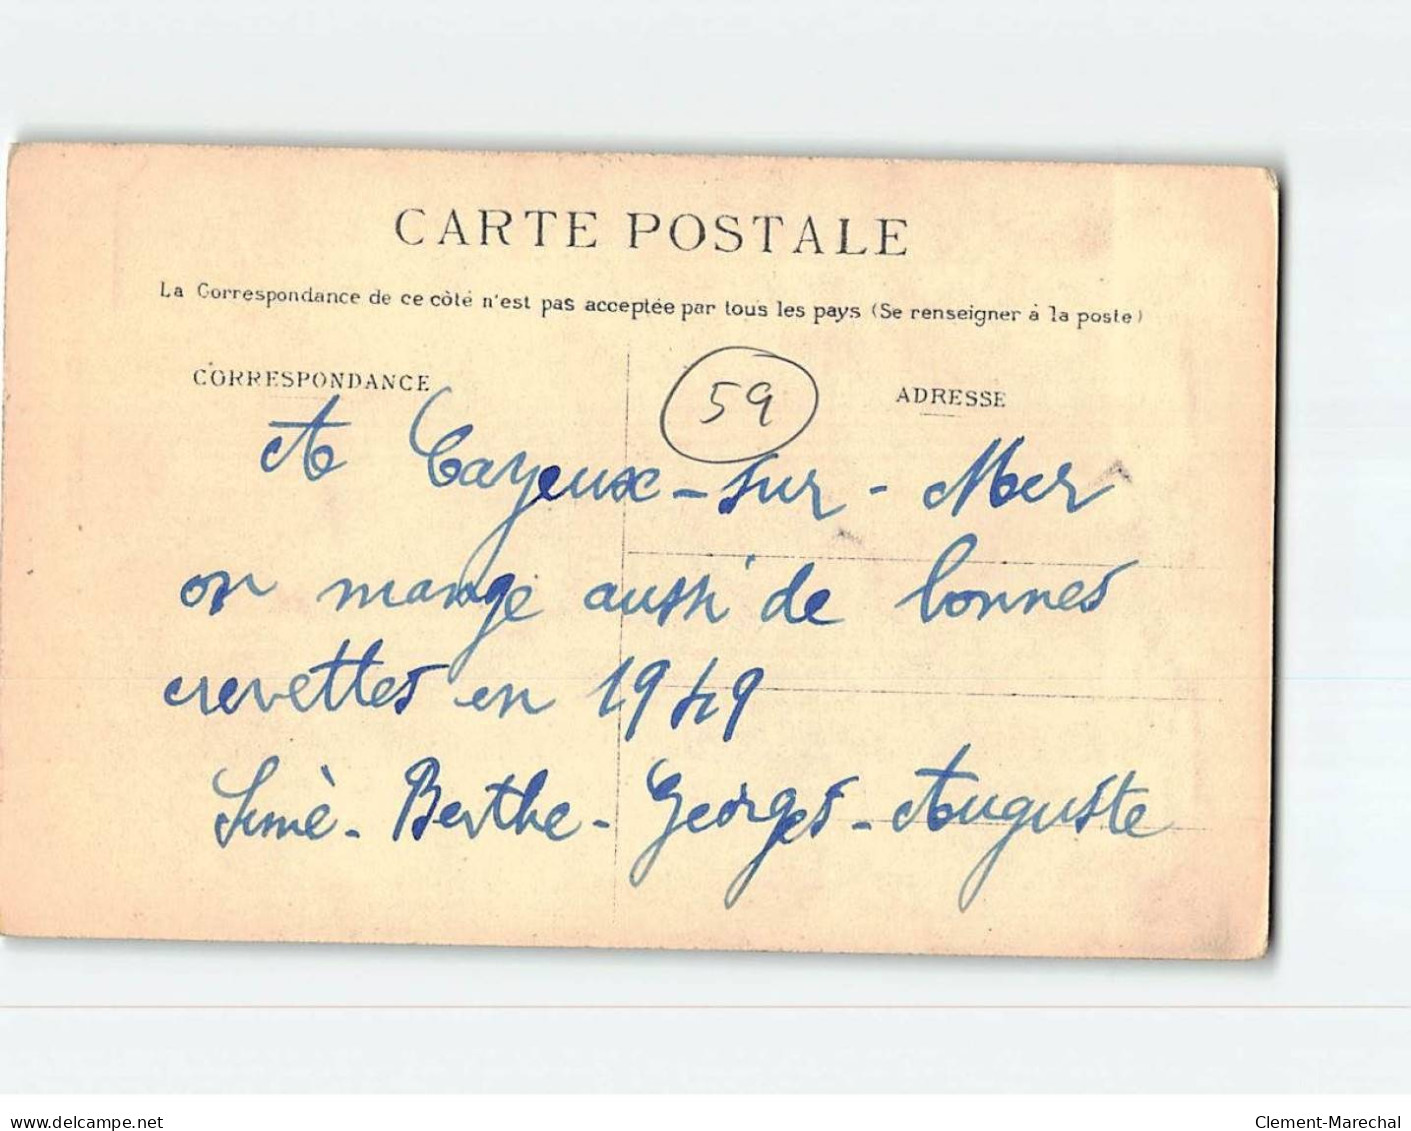 CARTE POSTALE
La Correspondance de ce côté n'est pas acceptée par tous les pays (Se renseigner à la poste)
CORRESPONDANCE
59
ADRESSE
A Cayeux-sur-Mer
on mange aussi de bonnes
crevettes en 1949
- Berthe - Georges - Auguste
delcampe.net
Clement-Marechal